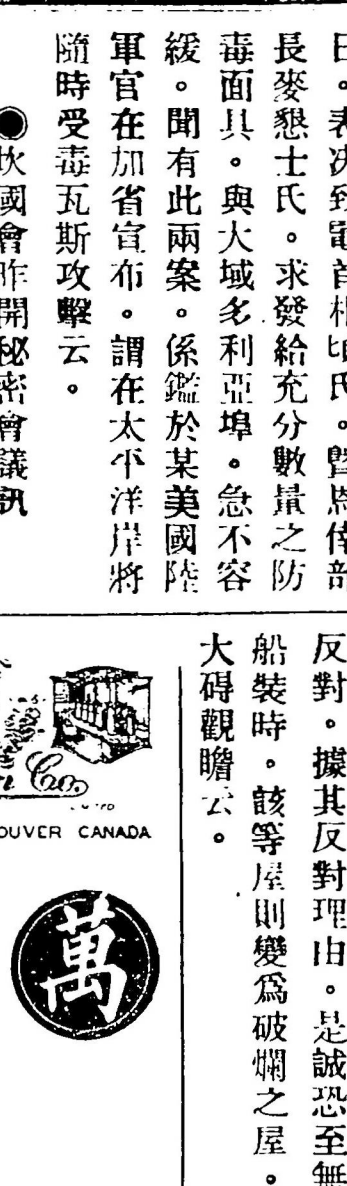 日。表决致電首相㐲氏。曁恩俸部
長麥懇士氏。求發給充分數量之防
毒面具。與大域多利亞埠。急不容
緩。聞有此兩案。係鑑於某美國陸
軍官在加省宣布。謂在太平洋岸將
隨時受毒瓦斯攻擊云。
●坎國會昨開秘密會議訊
反對。據其反對理由。是誠恐至無
船裝時。該等屋則變爲破爛之屋。
大碍觀瞻云。
Co.
OUVER CANADA
萬